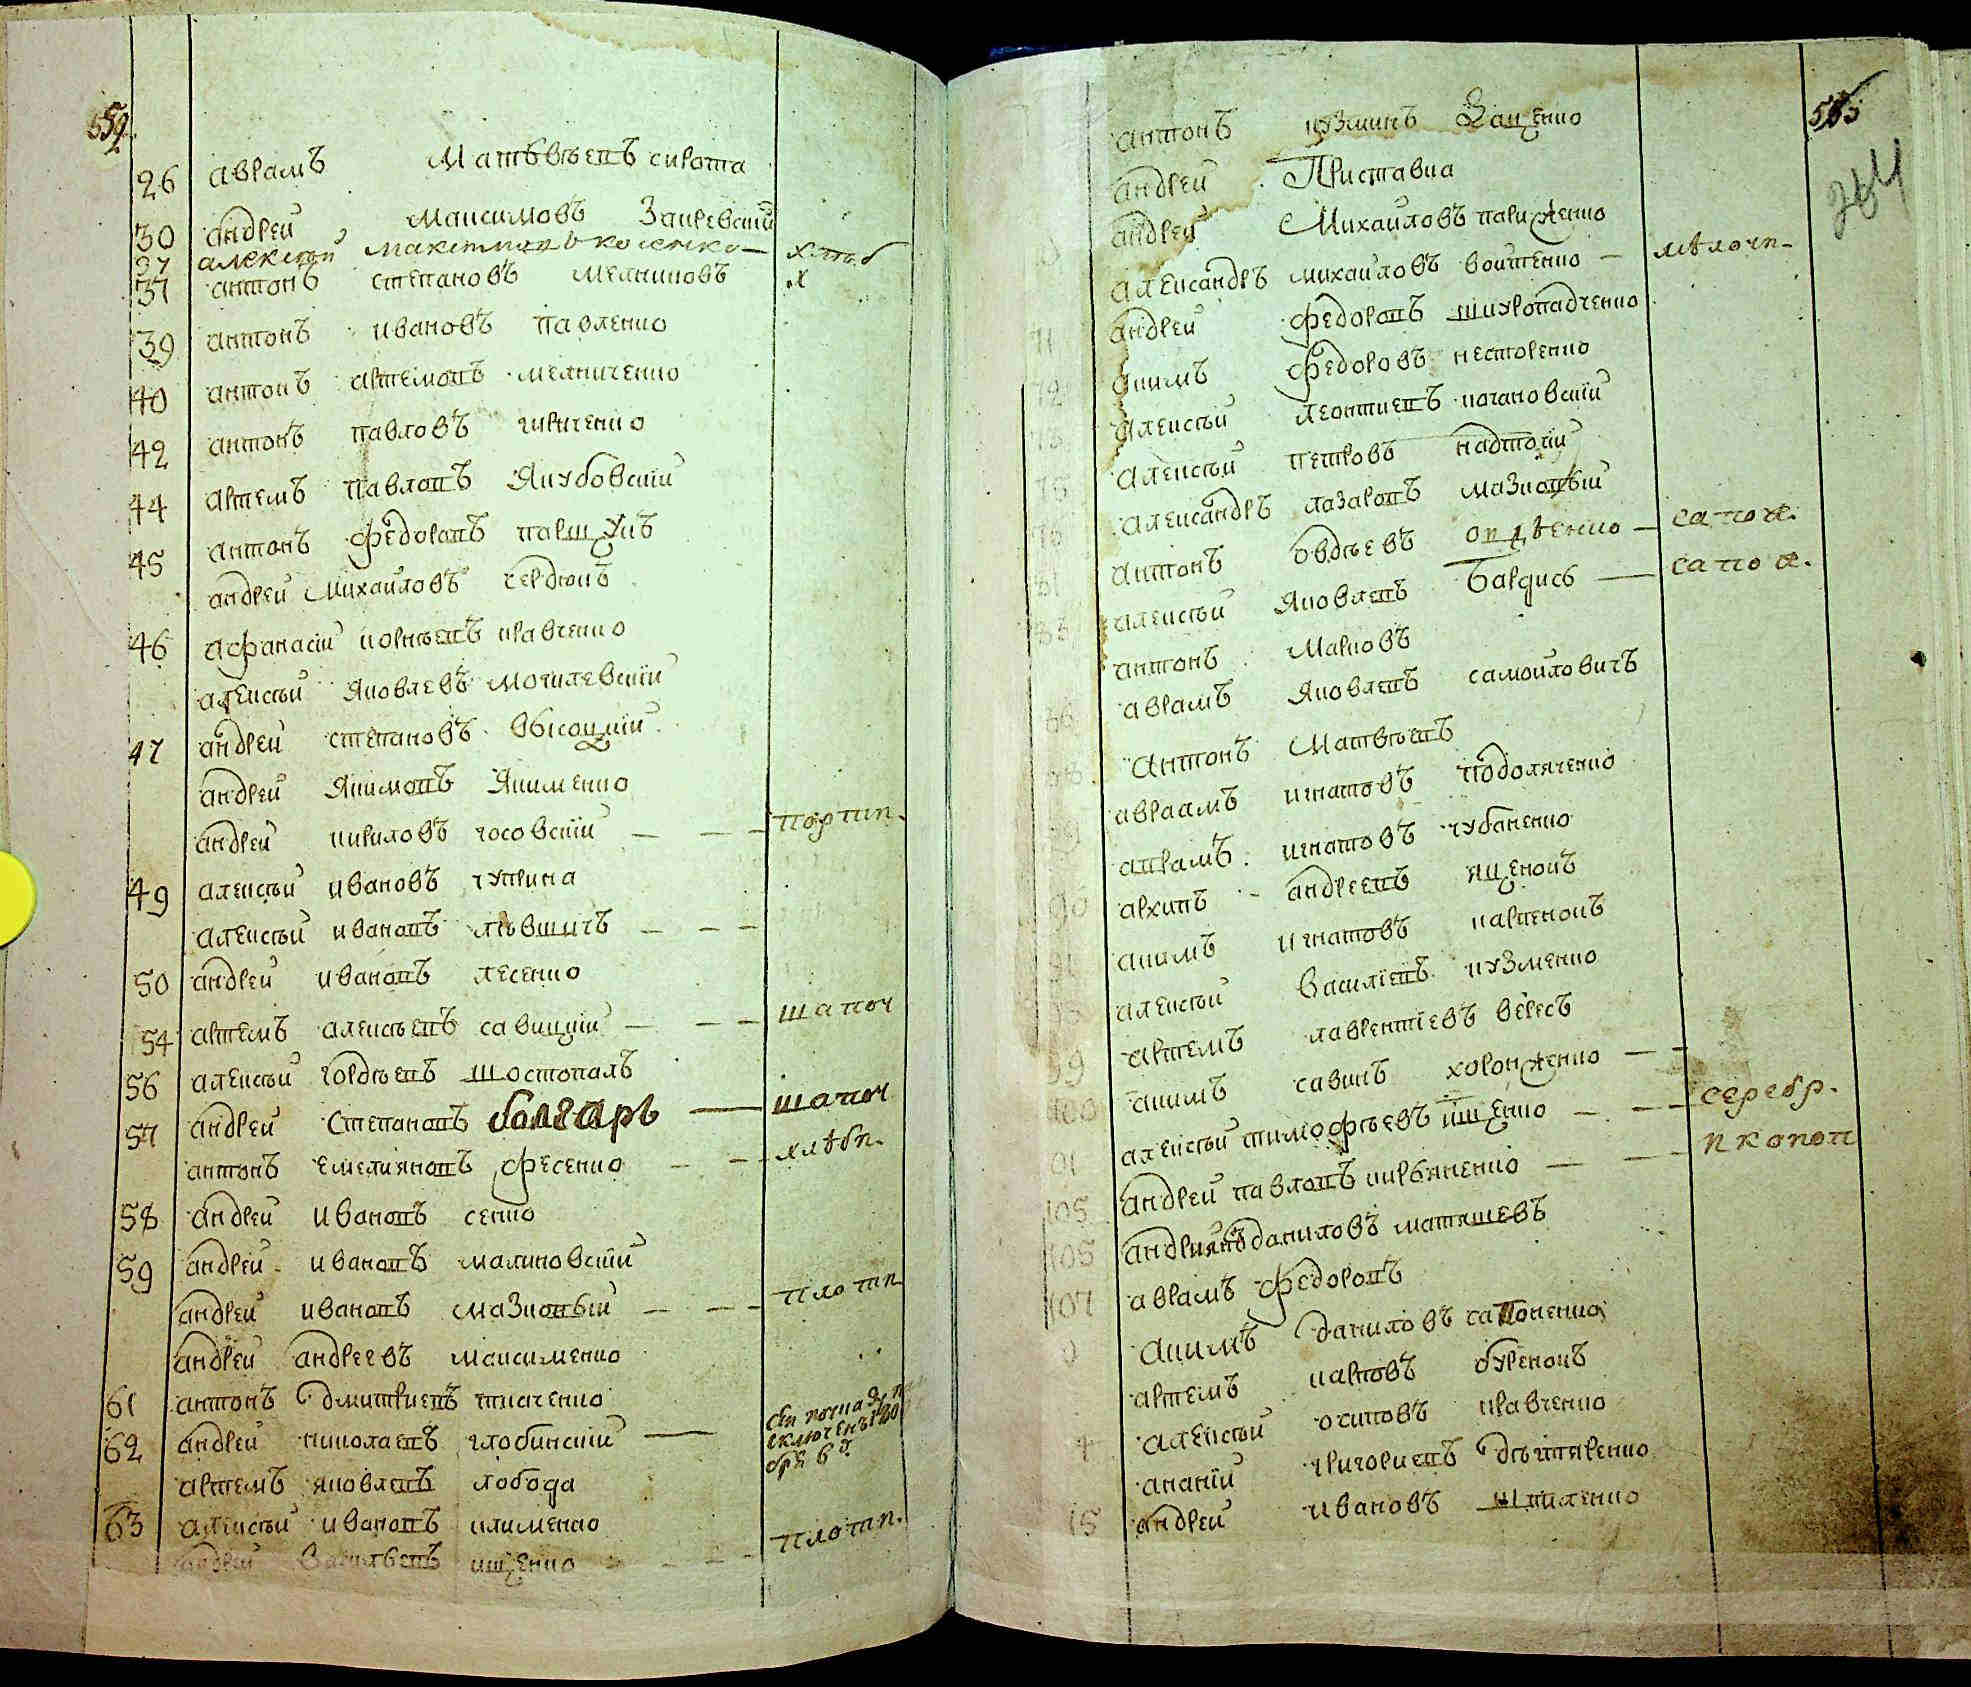 559
26 Аврамъ Матьвѣевъ сирота
30 андреи Максимовъ Закревскїи
37 антонъ степановъ Мелниковъ х
39 антонъ ивановъ павленко
40 антонъ артемовъ мелниченко
42 антонъ павловъ
44 артемъ павловъ Якубовскїи
45 антонъ федоровъ паршукъ
андреи Михаиловъ сердюкъ
46 афанасїи корнѣевъ кравченко
алексѣи Яковлевъ могилевскїи
47 андреи степановъ высоцкїи
андреи Якимовъ Якименко
андреи кириловъ госовскїи — — — портн.
49 алексѣи ивановъ чуприна
алексѣи ивановъ — — —
50 андреи ивановъ лесенко
54 артемъ алексѣевъ савицкїи — — — шапоч
56 алексѣи гордѣевъ шостопалъ
57 андреи Степановъ болгаръ — шапоч
антонъ емелияновъ фесенко — — — хлѣбн.
58 андреи ивановъ сенко
59 андреи ивановъ малиновскїи
андреи ивановъ мазновыи — — — плотн
андреи андреевъ максименко
61 антонъ дмитриевъ ткаченко
62 андреи николаевъ глобинскїи —
артемъ яковлевъ лобода
63 алексѣи ивановъ клименко
андреи Васильевъ ищенко — — — плотнн.
565
264
антонъ кузминъ Ващенко
андреи Приставка
андреи Михаиловъ
александръ михаиловъ воитенко — мѣлочн-
71 андреи федоровъ шкуропадченко
72 акимъ федоровъ несторенко
алексѣи леонтиевъ кочановскїи
алексѣи петровъ надточїи
александръ лазаровъ мазновыи
антонъ овдѣевъ — сапож.
алексѣи Яковлевъ Бардисъ — сапож.
антонъ Марковъ
аврамъ Яковлевъ самоиловичъ
антонъ Матвѣевъ
авраамъ игнатовъ подоляченко
аврамъ игнатовъ чубаненко
90 архипъ андреевъ ященокъ
акимъ игнатовъ карпенокъ
алексѣи Василїевъ кузменко
99 артемъ лаврентїевъ вересъ
100 акимъ савинъ хоронженко — —
101 алексѣи тимофѣевъ ищенко — — — серебр.
105 андреи павловъ кирьяненко — — — иконоп
105 андриянъ даниловъ матяшевъ
107 аврамъ федоровъ
акимъ даниловъ сапоненко
артемъ карповъ буренокъ
алексѣи осиповъ кравченко
ананїи григориевъ дѣхтяренко
15 андреи ивановъ шпиленко